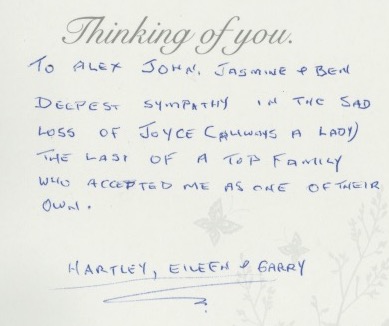 Thinking of you.
TO ALEX JOHN, JASMINE & BEN
DEEPEST SYMPATHY IN THE SAD
LOSS OF JOYCE (ALWAYS A LADY)
THE LAST OF A TOP FAMILY
WHO ACCEPTED ME AS ONE OF THEIR
OWN.
HARTLEY, EILEEN & GARRY